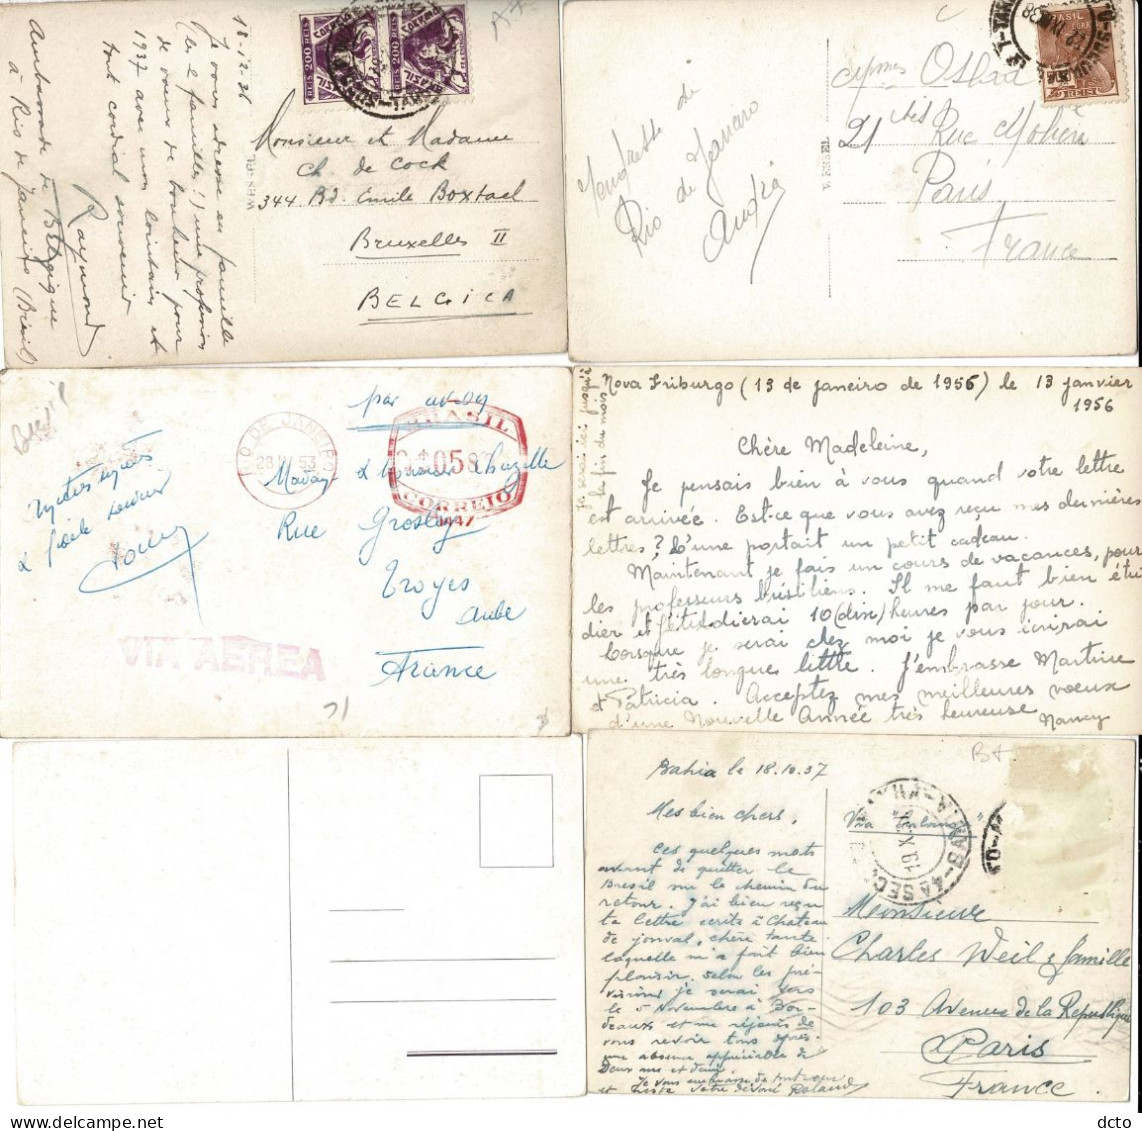 18-12-36
Je vous adresse en famille
(la famille!!) une profusion
de vœux de bonheur pour
1937 avec mon lointain et
tout cordial souvenir
Raymond
Ambassade de Belgique
à Rio de Janeiro (Brésil)
WESSEL
REIS 200 REIS
BRASIL
CORREIO
Monsieur et Madame
Ch. de Cock
344 Bd. Emile Boxtael
Bruxelles II
BELGICA
Rio de Janeiro
André
WESSEL
BRASIL
REIS
21 Rue Molière
Paris
France
Brésil
RIO DE JANEIRO
28 IV 53
par avion
BRASIL
058
CORREIO
Rue Grosley
Troyes
Aube
France
VIA AEREA
Je serai ici jusqu'à
la fin du mois
Nova Friburgo (13 de janeiro de 1956) le 13 janvier
1956
Chère Madeleine,
Je pensais bien à vous quand votre lettre
est arrivée. Est-ce que vous avez reçu mes dernières
lettres? L'une portait un petit cadeau.
Maintenant je fais un cours de vacances, pour
les professeurs brésiliens. Il me faut bien étu
dier et j'étudierai 10 (dix) heures par jour.
Lorsque je serai chez moi je vous écrirai
une très longue lettre. J'embrasse Martine
et Patricia. Acceptez mes meilleures voeux
d'une Nouvelle Année très heureuse
Nancy
Bahia le 18.10.37
Mes bien chers,
Ces quelques mots
avant de quitter le
Brésil sur le chemin du
retour. J'ai bien reçu
ta lettre écrite à Chateau
de Jonval, chère tante
laquelle m'a fait bien
plaisir. Selon les pré-
visions je serai vers
le 5 Novembre à Bor-
deaux et me réjouis de
vous revoir tous après
une absence appréciable de
Deux ans et demi.
et reste votre dévoué Roland
BAHIA
4A SEC.
19 X
Monsieur
Charles Weil & famille
103 Avenue de la République
Paris
France